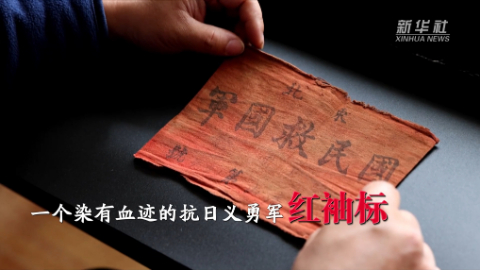 新华社
XINHUA NEWS
東北
軍國救民國
一个染有血迹的抗日义勇军红袖标